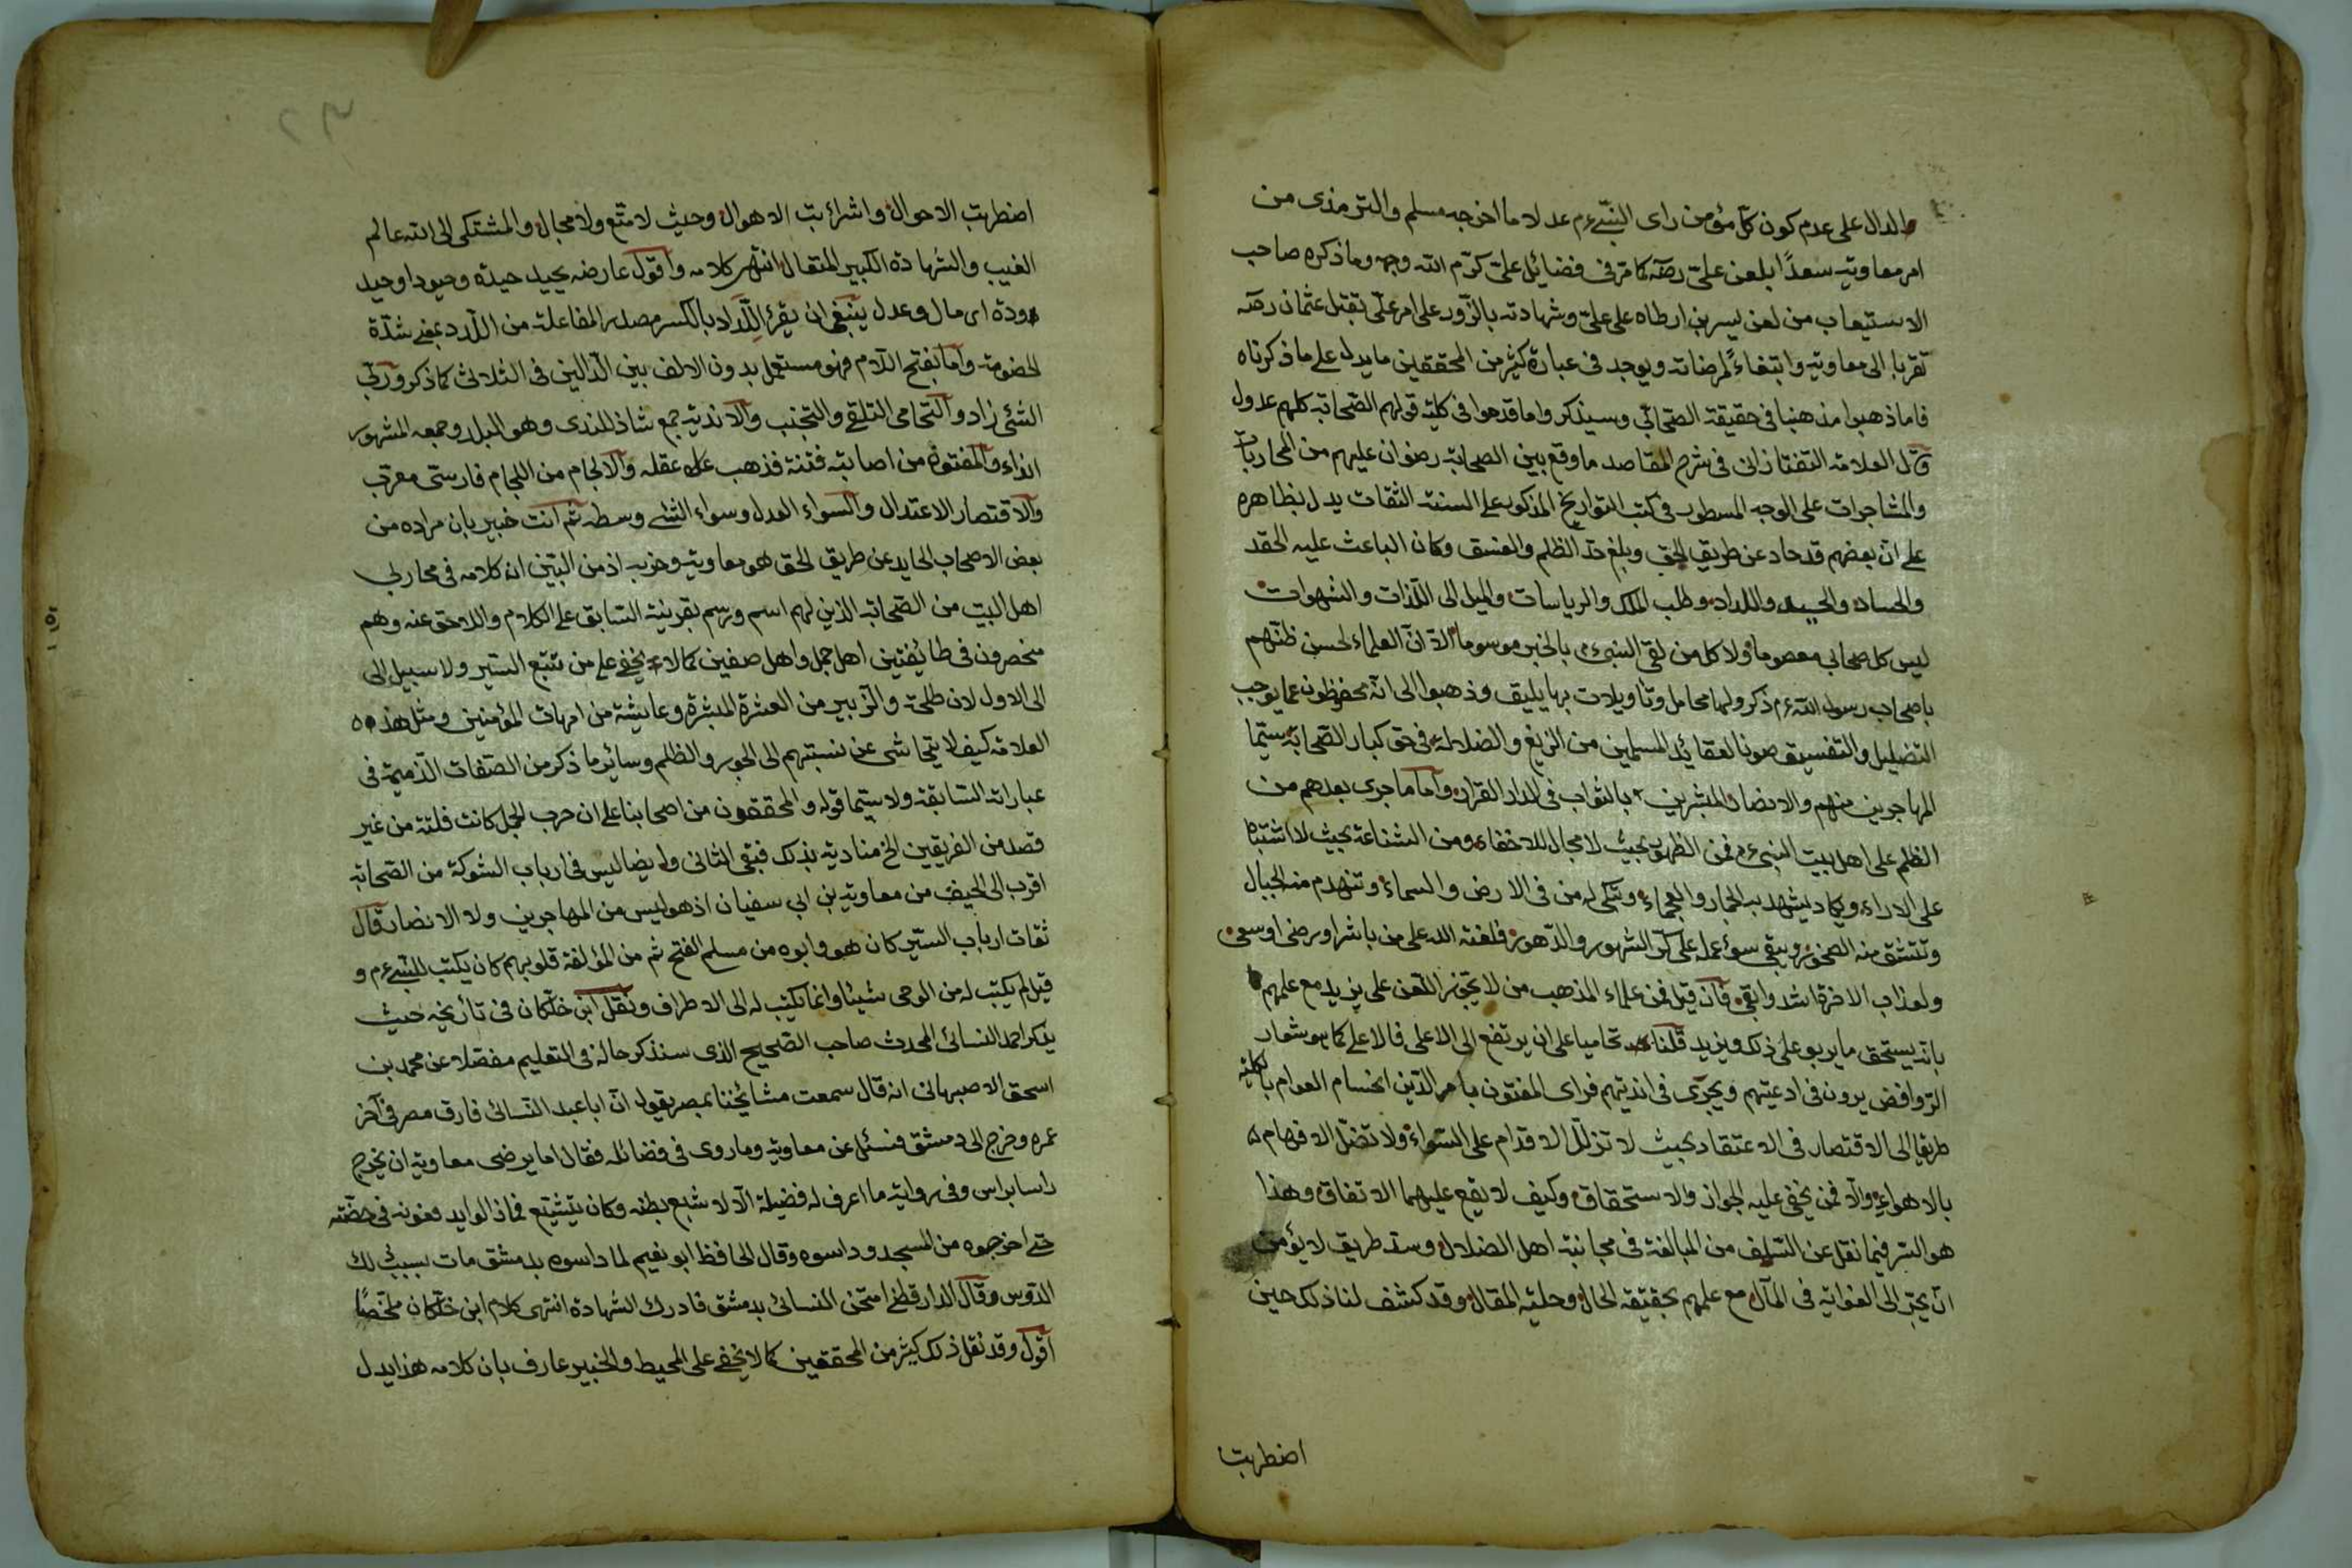 والدال على عدم كون كل مؤمن راى النبى ءم عدلا ما اخرجه مسلم والترمذى من
امر معاوية سعدًا بلعن على رضه كما مر فى فضائل على كرّم الله وجهه وما ذكره صاحب
الاستيعاب من لعن بسر بن ارطاه على على وشهادته بالزور على امر على بقتل عثمان رضه
تقربا الى معاوية وابتغاءً لمرضاته ويوجد فى عبارة كثير من المحققين ما يدل على ما ذكرناه
فاما ذهبوا مذهبنا فى حقيقة الصحابى وسيذكر واما قدحوا فى كلية قولهم الصحابة كلهم عدول
قال العلامة التفتازانى فى شرح المقاصد ما وقع بين الصحابة رضوان عليهم من المحاربات
والمشاجرات على الوجه المسطور فى كتب التواريخ المذكور على السنة الثقات يدل بظاهره
على ان بعضهم قد حاد عن طريق الحق وبلغ حد الظلم والفسق وكان الباعث عليه الحقد
والعناد والحسد واللداد وطلب الملك والرياسات والميل الى اللذات والشهوات
ليس كل صحابى معصوما ولا كل من لقى النبى ءم بالخير موسوما الا ان العلماء لحسن ظنهم
باصحاب رسول الله ءم ذكروا لها محامل وتاويلات بها يليق وذهبوا الى انهم محفوظون عما يوجب
التضليل والتفسيق صونا لعقائد المسلمين من الزيغ والضلالة فى حق كبار الصحابة سيما
المهاجرين منهم والانصار المبشرين بالثواب فى الدار القرار واما ما جرى بعدهم من
الظلم على اهل بيت النبى ءم فمن الظهور بحيث لا مجال للاخفاء ومن الشناعة بحيث لا اشتباه
على الاراء ويكاد يشهد به الجماد والعجماء وتبكى له من فى الارض والسماء وتنهدم منه الجبال
وتنشق منه الصخور ويبقى سوء عمله على كر الشهور والدهور فلعنة الله على من باشر او رضى او سعى
ولعذاب الاخرة اشد وابقى فان قيل فمن علماء المذهب من لا يجوز اللعن على يزيد مع علمهم
بانه يستحق ما يربو على ذلك ويزيد قلنا تحاميا على ان يرتفع الى الاعلى فالاعلى كما هو شعار
الروافض يرون فى ادعيتهم ويجرى فى انديتهم فراى المفتون بامر الدين الجام العوام بالكلية
طريقا الى الاقتصار فى الاعتقاد بحيث لا تزلل الاقدام على السواء ولا تضل الافهام
بالاهواء والا فمن يخفى عليه الجواز والاستحقاق وكيف لا يقع عليهما الاتفاق وهذا
هو السر فيما نقل عن السلف من المبالغة فى مجانبة اهل الضلال وسد طريق لا يؤمن
ان يجر الى الغواية فى المآل مع علمهم بحقيقة الحال وجلية المقال وقد كشف لنا ذلك حين
اضطربت
اضطربت الاحوال واشرأبت الاهوال وحيث لا متسع ولا مجال والمشتكى الى الله عالم
الغيب والشهادة الكبير المتعال انتهى كلامه واقول عارضه يحيد حيدة وحيودا وحيد
ودة اى مال وعدل ينبغى ان يقرء اللداد بالكسر مصدر المفاعلة من اللدد بمعنى شدة
الخصومة واما بفتح اللام فهو مستعمل بدون الالف بين الدالين فى الثلاثى كما ذكر وربى
الشئ زاد والتحامى التلقى والتجنب والاندية جمع شاذ للندى وهو البلل وجمعه المشهور
انداء والمفتون من اصابته فتنة فذهب عقله والالجام من اللجام فارسى معرب
والاقتصار الاعتدال والسواء العدل وسواء الشئ وسطه ثم انت خبير بان مراده من
بعض الاصحاب الحايد عن طريق الحق هو معاوية وحزبه اذ من البين ان كلامه فى محاربى
اهل البيت من الصحابة الذين لهم اسم ورسم بقرينة السابق على الكلام واللاحق عنه وهم
منحصرون فى طائفتين اهل جمل واهل صفين كما لا يخفى على من تتبع السير ولا سبيل الى
الى الاول لان طلحة والزبير من العشرة المبشرة وعايشة من امهات المؤمنين ومثل هذه
العلامة كيف لا يتحاشى عن نسبتهم الى الجور والظلم وسائر ما ذكر من الصفات الذميمة فى
عباراته السابقة ولا سيما قوله والمحققون من اصحابنا على ان حرب الجمل كانت فلتة من غير
قصد من الفريقين الخ منادية بذلك فبقى الثانى وايضا ليس فى ارباب الشوكة من الصحابة
اقرب الى الحيف من معاوية بن ابى سفيان اذ هو ليس من المهاجرين ولا الانصار قال
ثقات ارباب السير كان هو وابوه من مسلم الفتح ثم من المؤلفة قلوبهم كان يكتب للنبى ءم و
قيل لم يكتب له من الوحى شيئا وانما يكتب له الى الاطراف ونقل ابن خلكان فى تأريخه حيث
يذكر احمد النسائى المحدث صاحب الصحيح الذى سنذكر حاله فى التعليم مفصلا عن محمد بن
اسحق الاصبهانى انه قال سمعت مشائخنا بمصر يقول ان ابا عبد النسائى فارق مصر فى آخر
عمره وخرج الى دمشق فسئل عن معاوية وما روى فى فضائله فقال اما يرضى معاوية ان يخرج
راسا براس وفى رواية ما اعرف له فضيلة الا لا شبع بطنه وكان يتشيع فما زالوا يدفعونه فى حضنه
حتى اخرجوه من المسجد وداسوه وقال الحافظ ابو نعيم لما داسوه بدمشق مات بسبب ذلك
الدوس وقال الدارقطنى امتحن النسائى بدمشق فادرك الشهادة انتهى كلام ابن خلكان ملخصًا
اقول وقد نقل ذلك كثير من المحققين كما لا يخفى على المحيط والخبير عارف بان كلامه هذا يدل